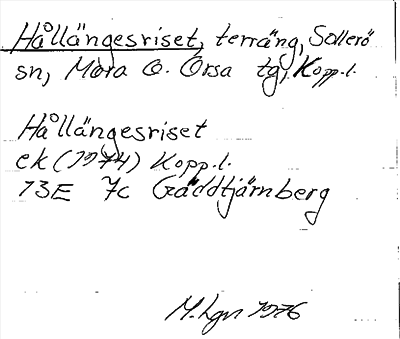 Hållängesriset, terräng, Sollerö
sn, Mora o. Orsa tg, Kopp.l.
Hållängesriset
ek (1974) Kopp.l.
13E 7c Gäddtjärnberg
M. Lgn 1976